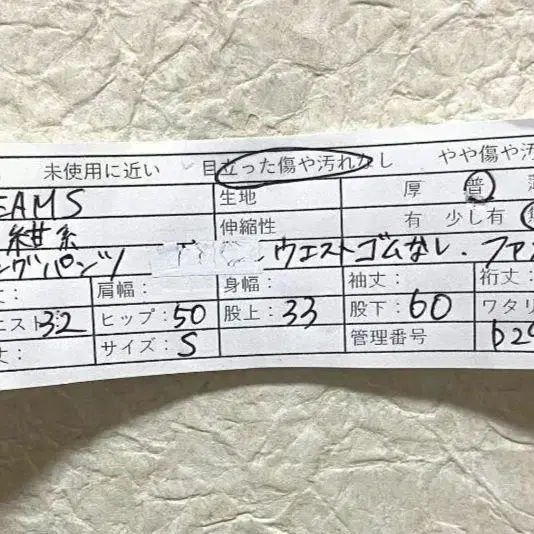 未使用に近い 目立った傷や汚れなし やや傷や汚
EAMS 生地 厚 普
紺系 伸縮性 有 少し有
ングパンツ ウエストゴムなし・ファ
丈： 肩幅： 身幅： 袖丈： 裄丈：
エスト32 ヒップ：50 股上：33 股下：60 ワタリ
丈： サイズ：S 管理番号